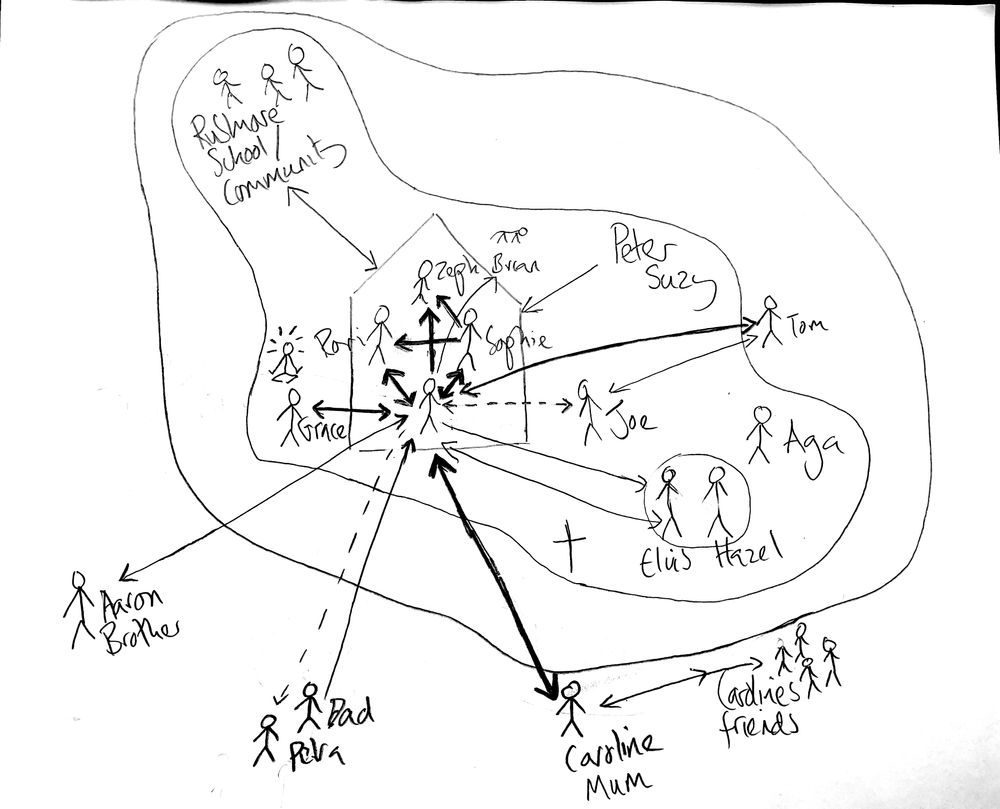 Rushmore
School /
Community
Zeph
Brian
Peter
Suzy
Rori
Sophie
Tom
Grace
Joe
Aga
Elvis Hazel
Aaron
Brother
Dad
Petra
Caroline
Mum
Carolines
friends